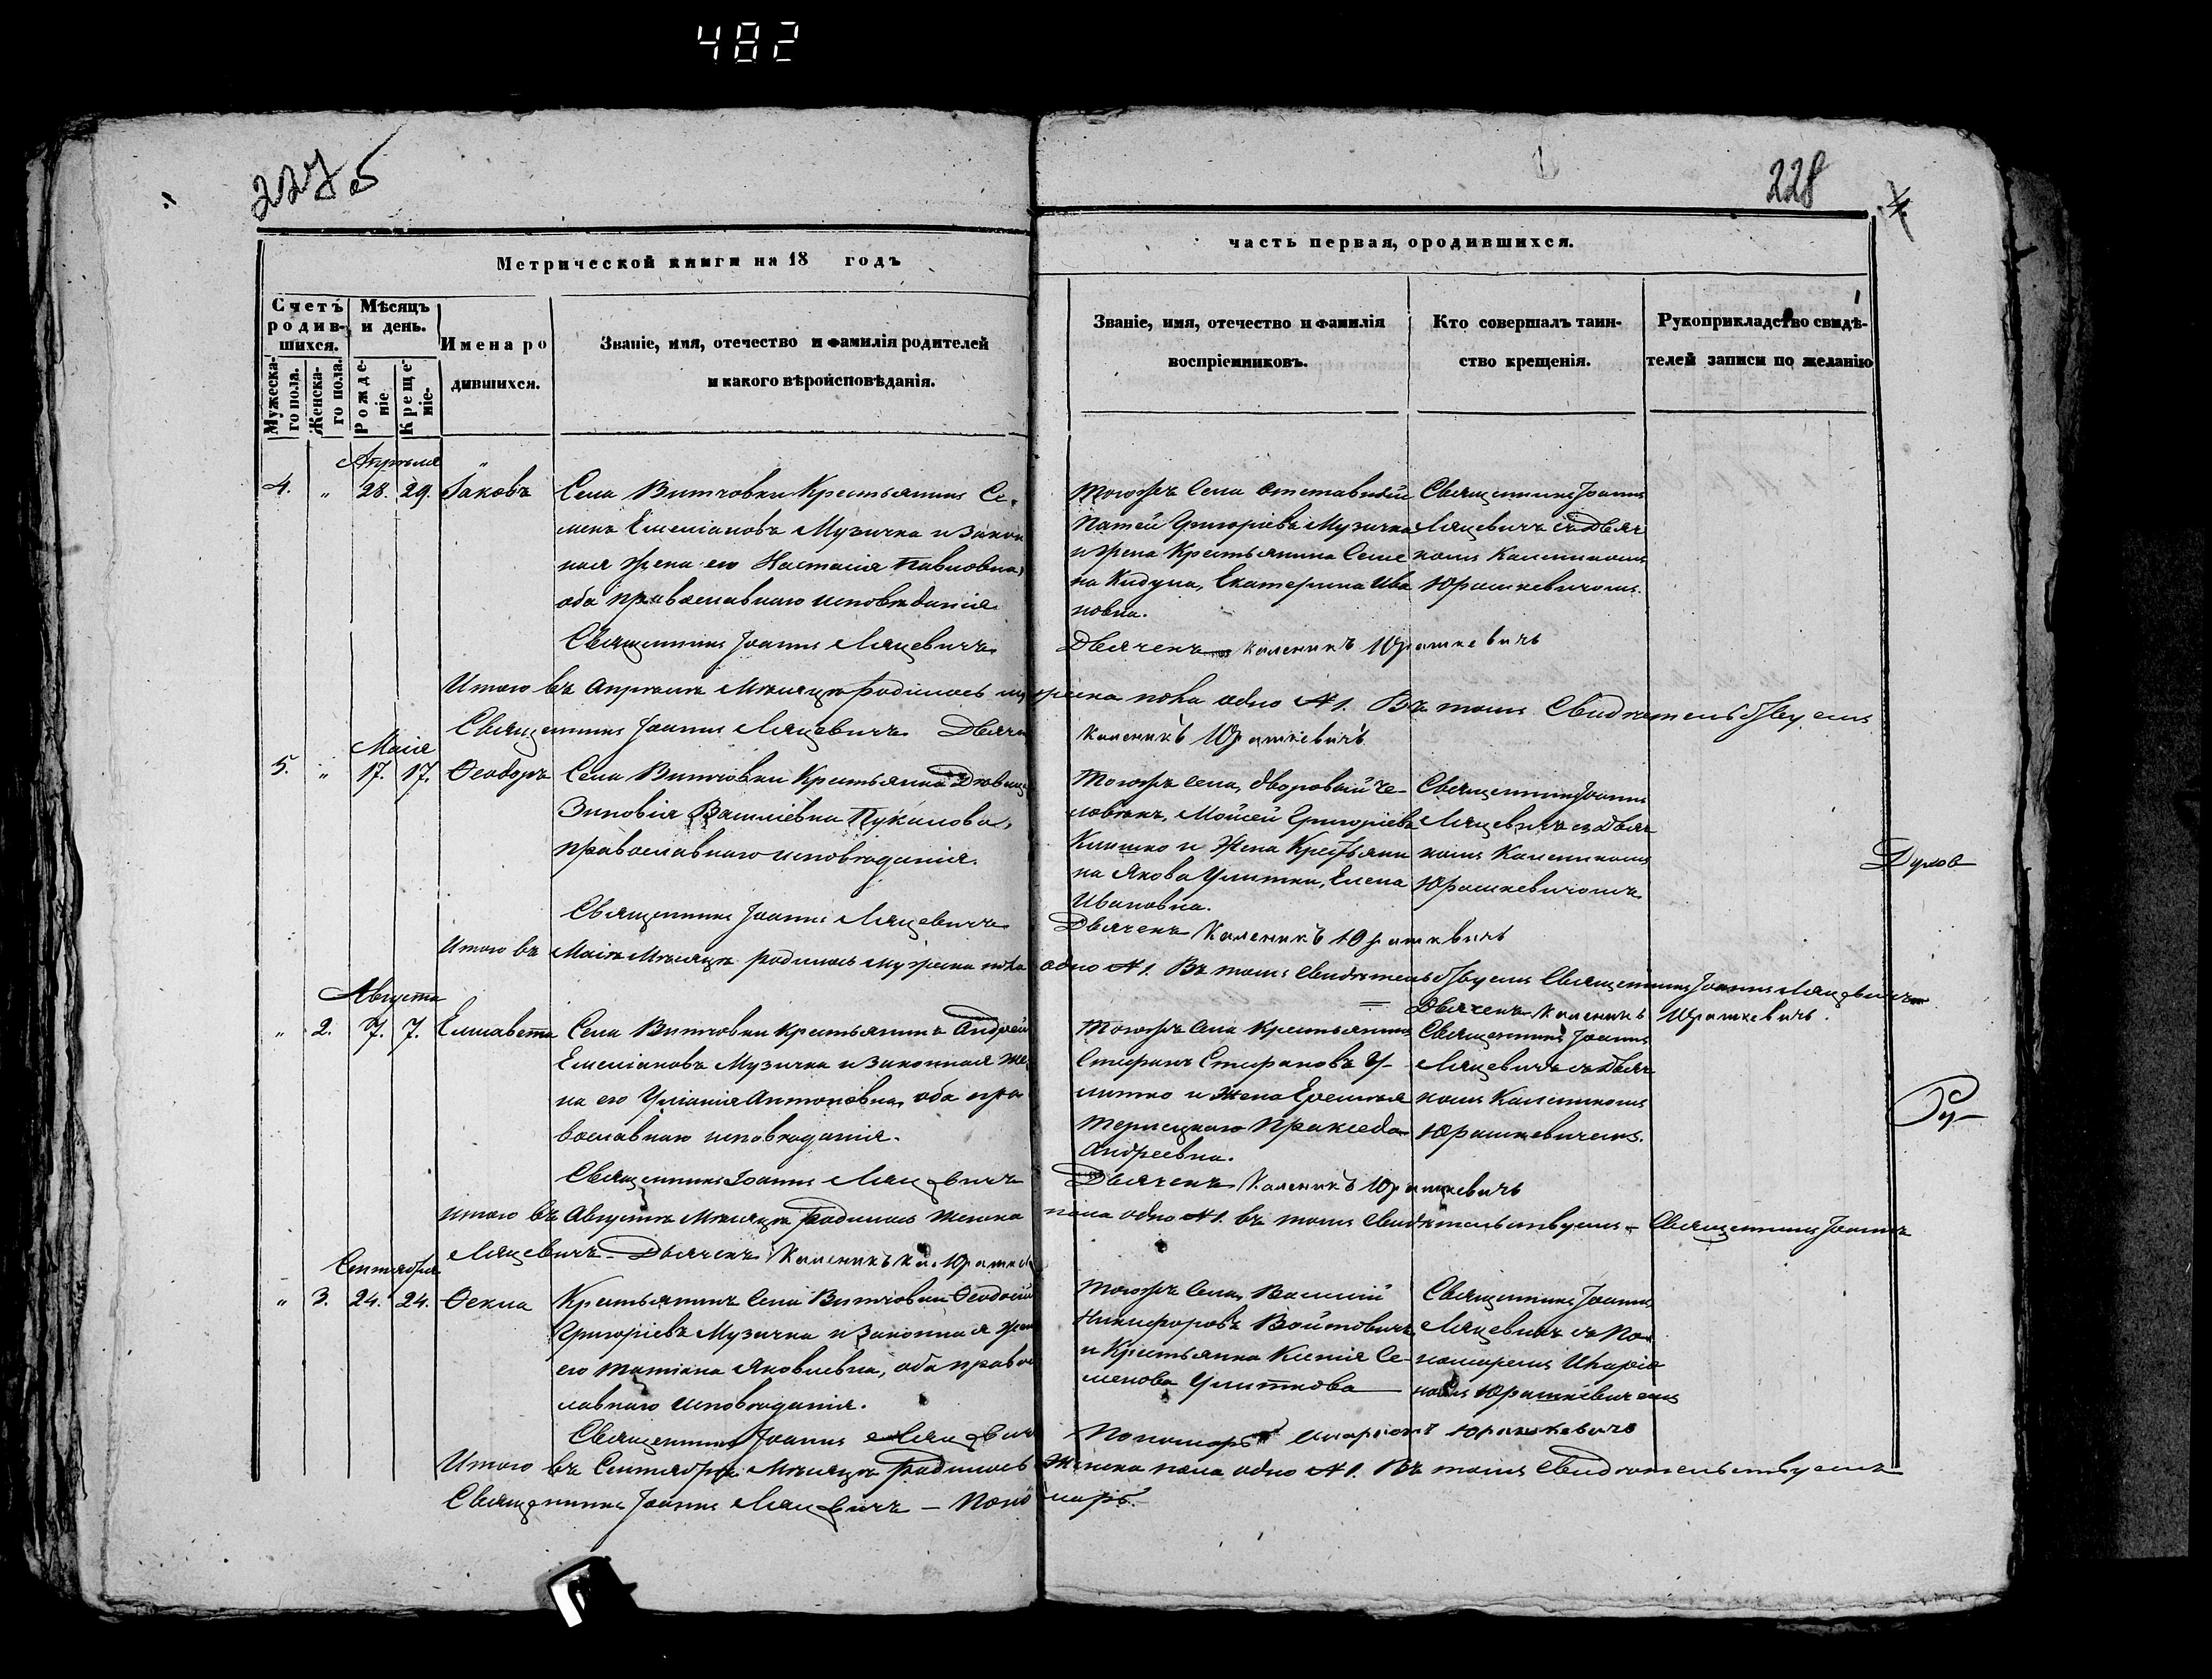 482
227 об
228
Метрической книги на 18 годъ
часть первая, ородившихся.
Счетъ родив-шихся.
Мужеска-го пола.
Женска-го пола.
Мѣсяцъ и день.
Рожде-ніе
Креще-ніе-
Имена ро
дившихся.
Званіе, имя, отечество и фамилія родителей
и какого вѣроисповѣданія.
Званіе, имя, отечество и фамилія
воспріемниковъ.
Кто совершалъ таин-
ство крещенія.
Рукоприкладство свидѣ-
телей записи по желанію
Апрѣля
4. " 28. 29. Іаковъ
Села Витовки Крестьянинъ Се-
менъ Емеліановъ Музичка и закон
ная жена его Настасія Павловна,
оба православнаго исповѣданія
Священникъ Іоаннъ
Тогожъ Села отставной
Григоріевъ Музичка
и жена Крестьянина Семе
на Кидуна, Екатерина Ива
новна.
Дьячекъ Каленикъ Юрашкевичъ
Священникъ Іоаннъ
съ Дьяч
комъ Каленикомъ
Юрашкевичомъ.
Итого въ Апрѣлѣ Мѣсяцѣ родилось мужеска пола одно №1. Въ томъ Свидѣтельствуемъ
Священникъ Іоаннъ
Каленикъ Юрашкевичъ
Маія
5. " 17. 17. Ѳеодоръ
Села Витовки Крестьянка
Зиновія Василіевна Пукалова,
православнаго исповѣданія.
Священникъ Іоаннъ
Тогожъ села, дворовый че-
ловѣкъ, Мойсей Григоріевъ
Клишко и Жена Крестьяни
на Якова Улитки, Елена
Ивановна.
Дьячекъ Каленикъ Юрашкевичъ
Священникъ Іоаннъ
съ Дьяч
комъ Каленикомъ
Юрашкевичомъ
Духов
Итого въ Маіѣ Мѣсяцѣ родилось мужеска пола одно №1. Въ томъ Свидѣтельствуемъ Священникъ Іоаннъ
Дьячекъ Каленикъ Юрашкевичъ.
Августа
" 2. 7. 7. Елисавета
Села Витовки Крестьянинъ Андрей
Емеліановъ Музичка и законная же
на его Уліанія Антоновна, оба пра
вославнаго исповѣданія.
Священникъ Іоаннъ
Тогожъ Села Крестьянинъ
Стефанъ Стефановъ У-
литко и Жена
Пракседа
Андреевна.
Дьячекъ Каленикъ Юрашкевичъ
Священникъ Іоаннъ
съ Дьяч
комъ Каленикомъ
Юрашкевичемъ.
Итого въ Августѣ Мѣсяцѣ родилось женска пола одно №1. въ томъ Свидѣтельствуемъ - Священникъ Іоаннъ
Дьячекъ Каленикъ
Сентября
" 3. 24. 24. Ѳекла
Крестьянинъ Села Витовки Ѳеодосій
Григоріевъ Музичка и законная жена
его Татіана Яковлевна, оба право
славнаго исповѣданія.
Священникъ Іоаннъ
Тогожъ Села, Василій
Никифоровъ Войтовичъ
и Крестьянка Ксенія Се-
менова Улиткова
Пономарь Юрашкевичъ
Священникъ Іоаннъ
съ По
номаремъ
Юрашкевичемъ
Итого въ Сентябрѣ Мѣсяцѣ родилось Женска пола одно №1. Въ томъ Свидѣтельствуемъ
Священникъ Іоаннъ
- Пономарь.